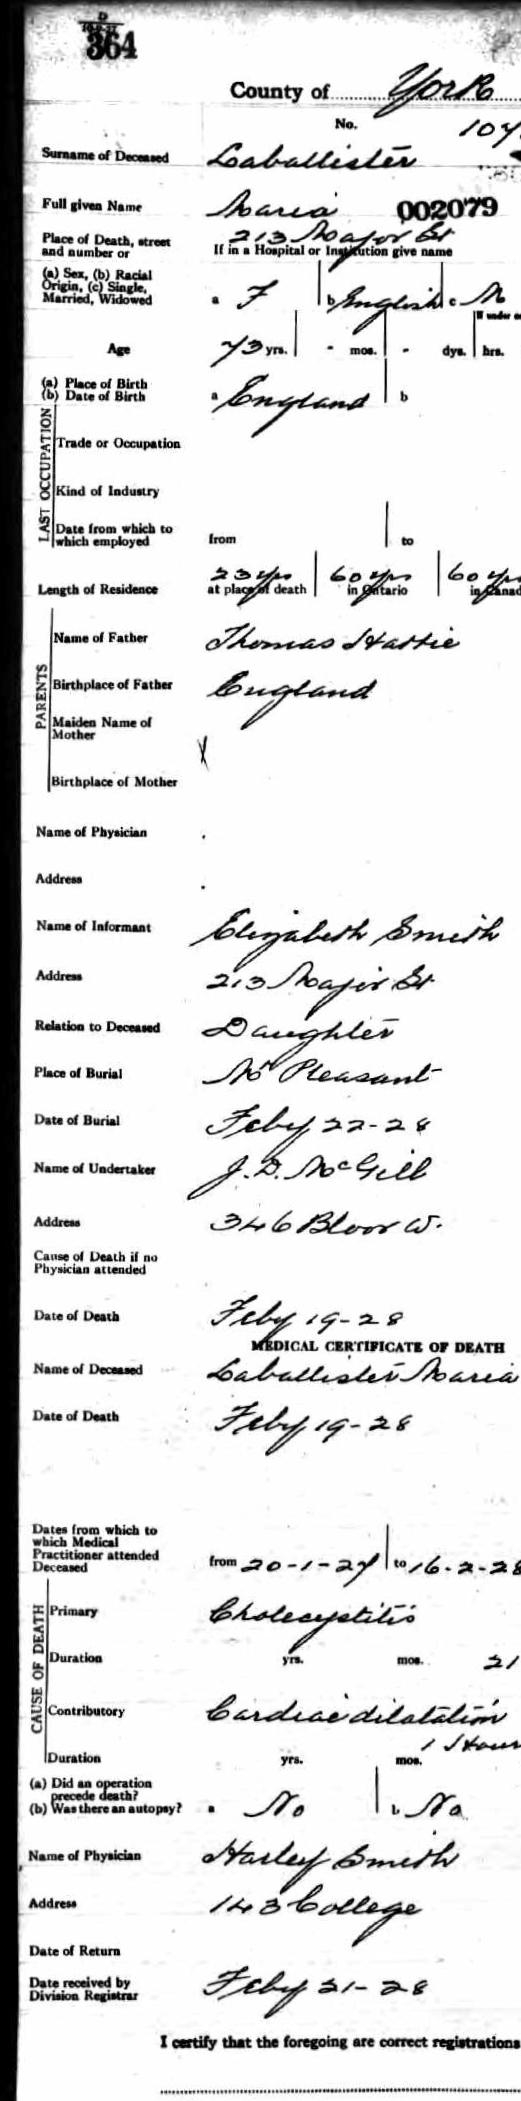 D
364
County of York
No. 107
Surname of Deceased Laballister
Full given Name Maria 002079
Place of Death, street and number or 213 Major St
If in a Hospital or Institution give name
(a) Sex, (b) Racial Origin, (c) Single, Married, Widowed a F b English c M
If under
Age 73 yrs. - mos. - dys. hrs.
(a) Place of Birth
(b) Date of Birth a England b
LAST OCCUPATION
Trade or Occupation
Kind of Industry
Date from which to which employed from to
Length of Residence 23 yrs at place of death 60 yrs in Ontario 60 yrs in Canad
PARENTS
Name of Father Thomas Hattie
Birthplace of Father England
Maiden Name of Mother
Birthplace of Mother
Name of Physician
Address
Name of Informant Elizabeth Smith
Address 213 Major St
Relation to Deceased Daughter
Place of Burial Mt Pleasant
Date of Burial Feby 22-28
Name of Undertaker J. D. McGill
Address 346 Bloor W.
Cause of Death if no Physician attended
Date of Death Feby 19-28
MEDICAL CERTIFICATE OF DEATH
Name of Deceased Laballister Maria
Date of Death Feby 19-28
Dates from which to which Medical Practitioner attended Deceased from 20-1-27 to 16-2-28
CAUSE OF DEATH
Primary Cholecystitis
Duration yrs. mos. 21
Contributory Cardiac dilatation
Duration yrs. mos. 1 Hour
(a) Did an operation precede death?
(b) Was there an autopsy? a No b No
Name of Physician Harley Smith
Address 143 College
Date of Return
Date received by Division Registrar Feby 21-28
I certify that the foregoing are correct registrations